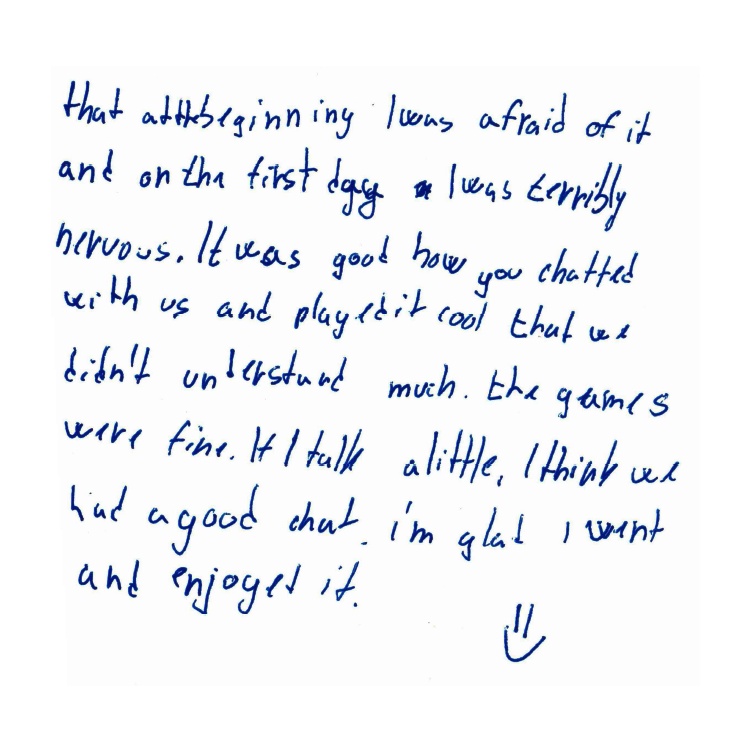 that atthebeginning I was afraid of it
and on the first day I was terribly
nervous. It was good how you chatted
with us and played it cool that we
didn't understand much. the games
were fine. If I talk a little, I think we
had a good chat. i'm glad i went
and enjoyed it.